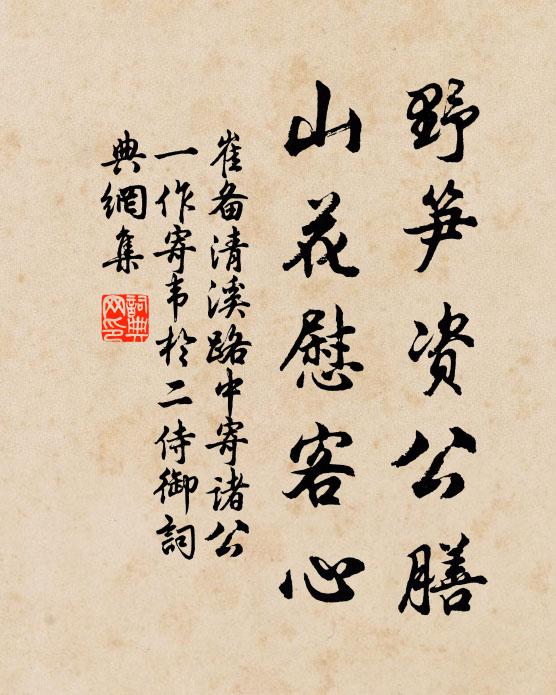 野笋资公膳
山花慰客心
崔备清溪路中寄诸公
一作寄韦於二侍御词
典網集
詞典网印